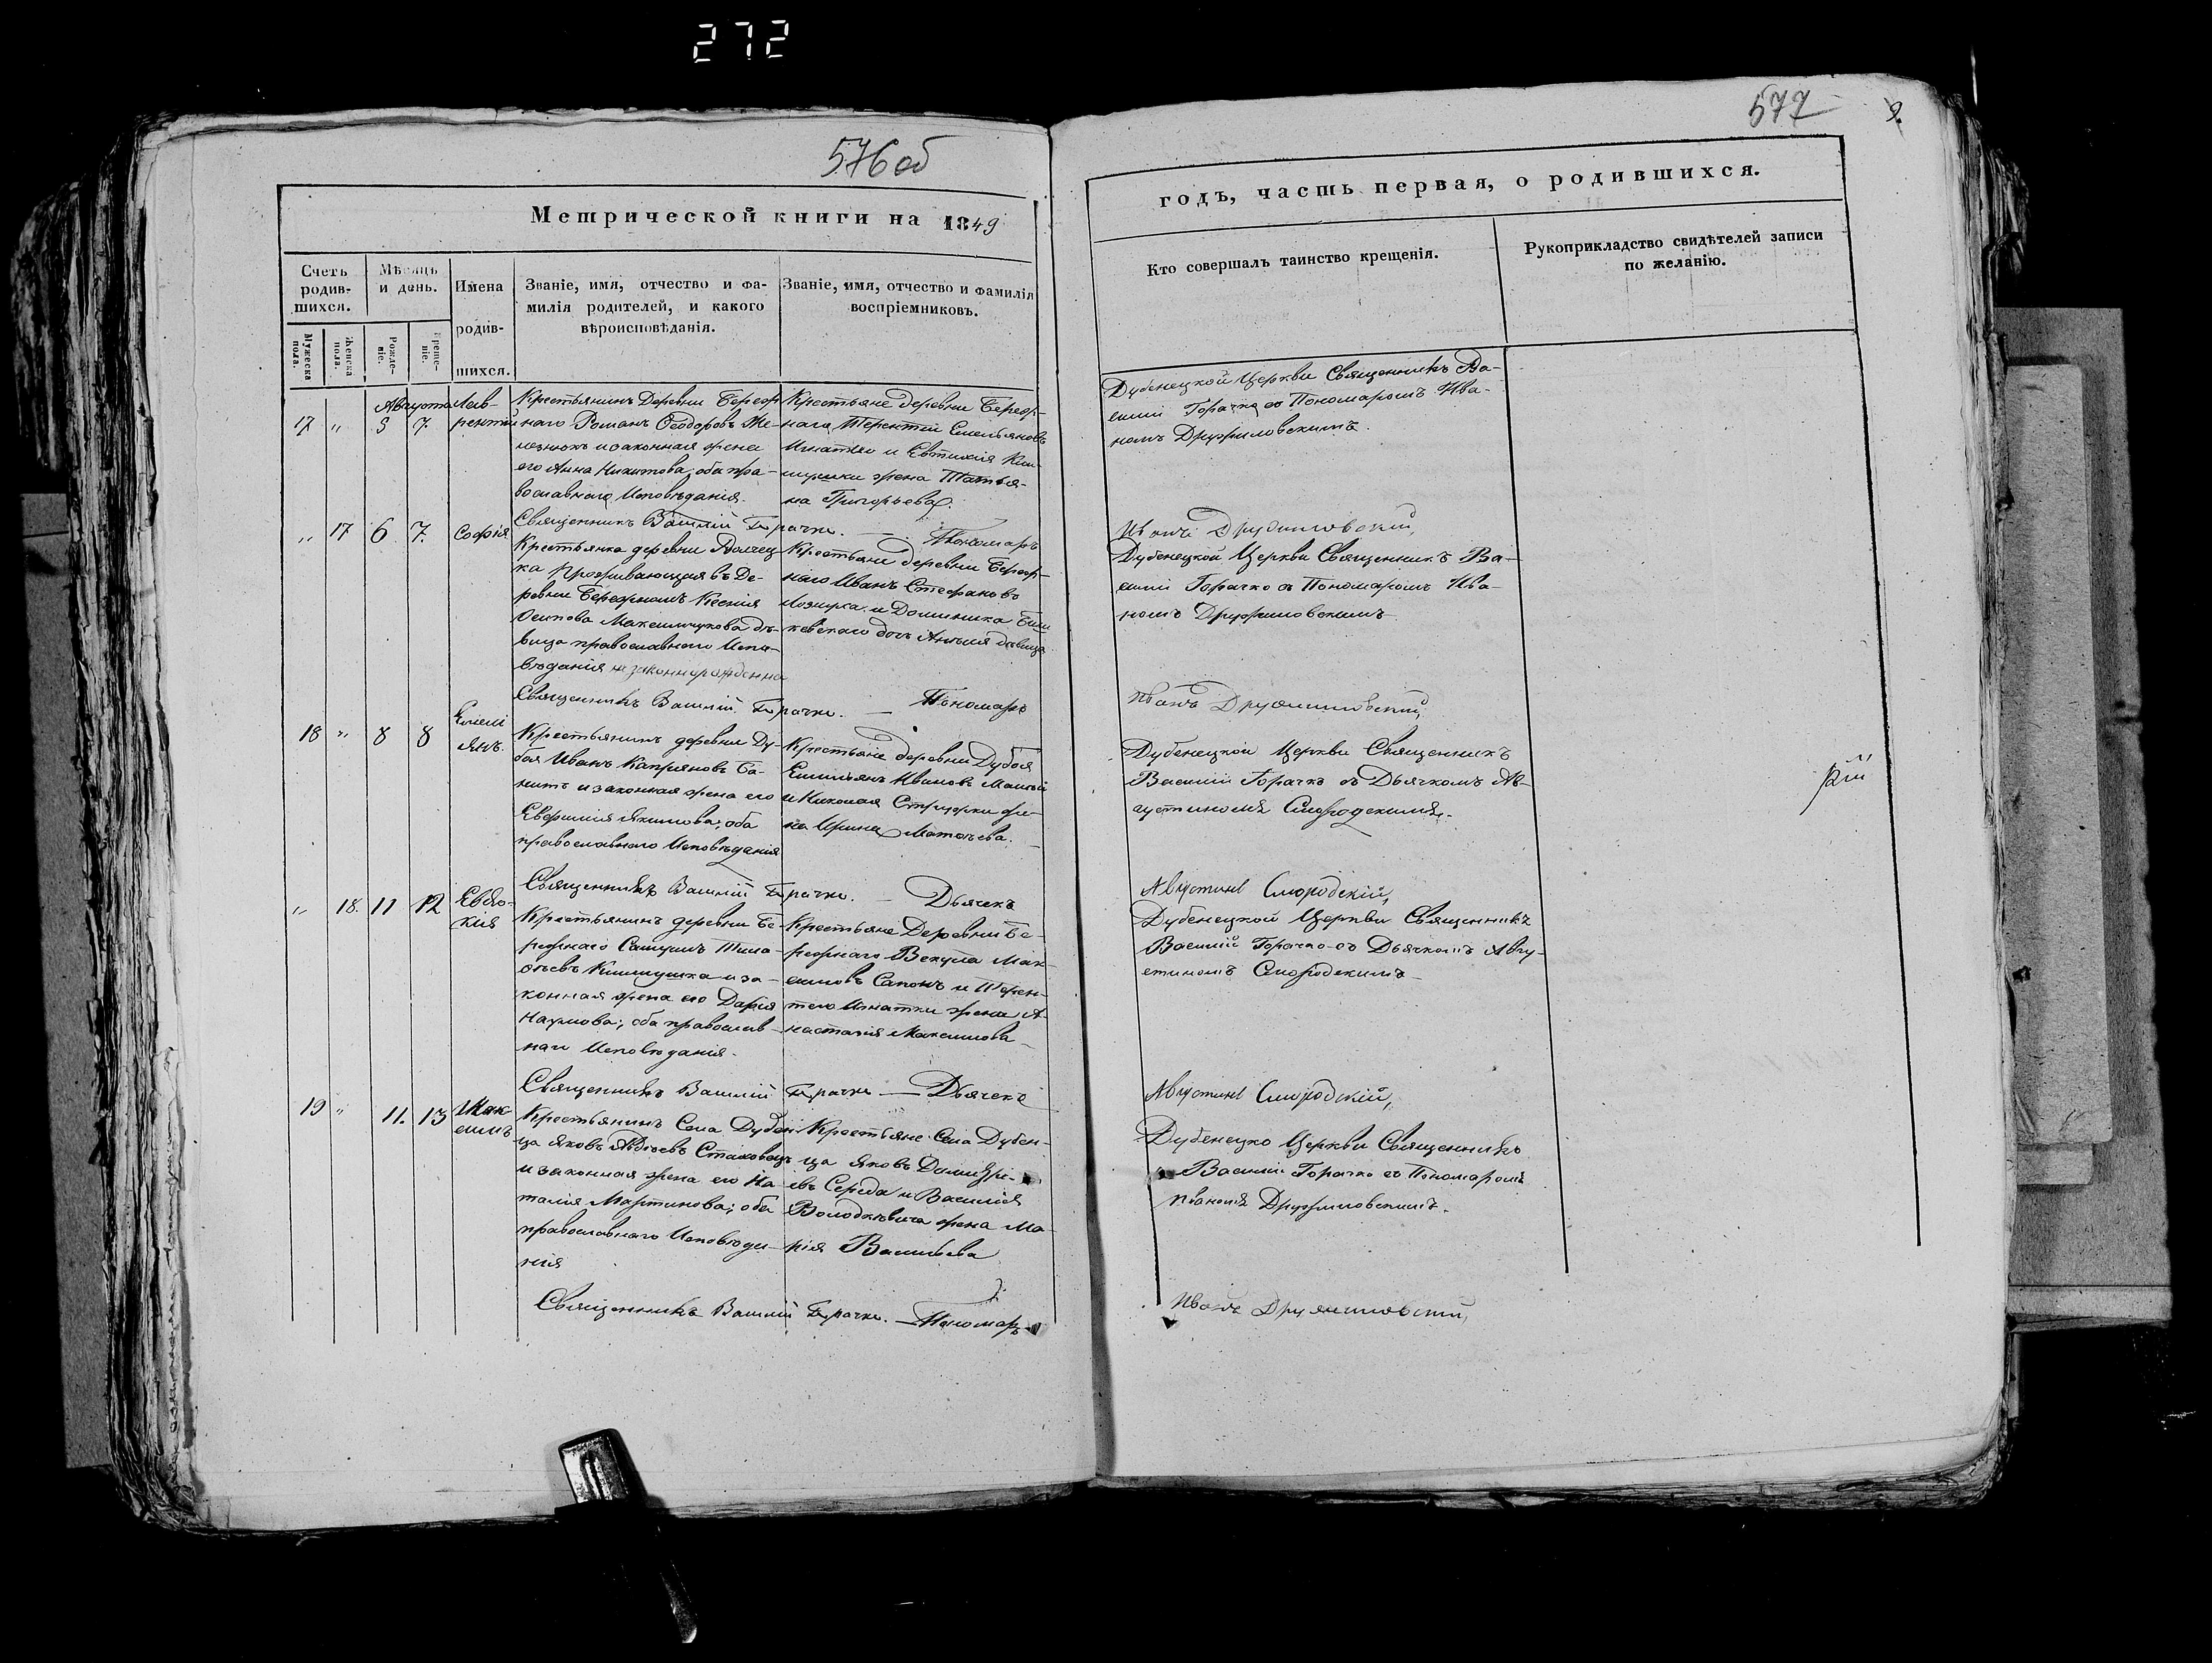 272
576 об
Метрической книги на 1849
Счетъ родив-шихся.
Мѣсяцъ и день.
Имена родив-шихся.
Званіе, имя, отчество и фа-
милія родителей, и какого
вѣроисповѣданія.
Званіе, имя, отчество и фамилія
воспріемниковъ.
Мужеска пола.
Женска пола.
Рожде-ніе.
Креще-ніе.
Августа
17 " 5 7. Лав-
рентій
Крестьянинъ Деревни Береж-
наго Романъ Ѳеодоровъ
и законная жена
его Анна Никитова, оба пра-
вославнаго Исповѣданія.
Крестьяне деревни Береж-
наго, Терентій Емельяновъ
Игнатко и Евтихія
жена Татья-
на Григорьева.
Священникъ Василій Горачко. — Пономарь
" 17 6 7. Софія
Крестьянка деревни
ка проживающая въ Де-
ревни Бережномъ Ксенія
Осипова Максимчукова дѣ-
вица православнаго Испо-
вѣданія незаконнорожденна
Крестьяне деревни Береж-
наго Иванъ Стефановъ
и Доминика
дочь дѣвица
Священникъ Василій Горачко. — Пономарь
18 " 8 8 Емелі
янъ.
Крестьянинъ деревни Ду-
бая Иванъ Каприяновъ Ба-
нитъ и законная жена его
Евфимія Якимова; оба
православнаго Исповѣданія
Крестьяне деревни Дубая
Емельянъ Ивановъ
и Николая же-
на Ирина Матвѣева.
Священникъ Василій Горачко. — Дьячекъ
" 18. 11 12 Евдо-
кія
Крестьянинъ деревни Бе-
режнаго Самуилъ Тимо-
ѳѣевъ и за-
конная жена его Дарія
Наумова; оба православ-
наго Исповѣданія.
Крестьяне Деревни Бе-
режнаго Векула Мак-
симовъ Сапонъ и Терен-
тего Игнатки жена А-
настазія Максимова
Священникъ Василій Горачко — Дьячекъ
19 " 11. 13 Мак-
симъ
Крестьянинъ Села Дубен-
ца Яковъ Авдѣевъ Стаховецъ
и законная жена его На-
талія Мартинова; оба
православнаго Исповѣда-
нія
Крестьяне Села Дубен-
ца Яковъ Димитрі-
евъ Середа и Василія
Володкевича жена Ма-
рія Васильева
Священникъ Василій Горачко. — Пономарь
577
годъ, часть первая, о родившихся.
Кто совершалъ таинство крещенія.
Рукоприкладство свидѣтелей записи
по желанію.
Дубенецкой Церкви Священникъ Ва-
силій Горачко съ Пономаромъ Ива-
номъ Дружиловскимъ.
Иванъ Дружиловский,
Дубенецкой Церкви Священникъ Ва-
силій Горачко съ Пономаромъ Ива-
номъ Дружиловскимъ
Иванъ Дружиловский,
Дубенецкой Церкви Священникъ
Василій Горачко съ Дьячкомъ Ав-
густиномъ Смородскимъ.
Августинъ Смородскій,
Дубенецкой Церкви Священникъ
Василій Горачко съ Дьячкомъ Авгу-
стиномъ Смородскимъ
Августинъ Смородскій,
Дубенецко Церкви Священникъ
Василій Горачко съ Пономаромъ
Иваномъ Дружиловскимъ.
Иванъ Дружиловский,